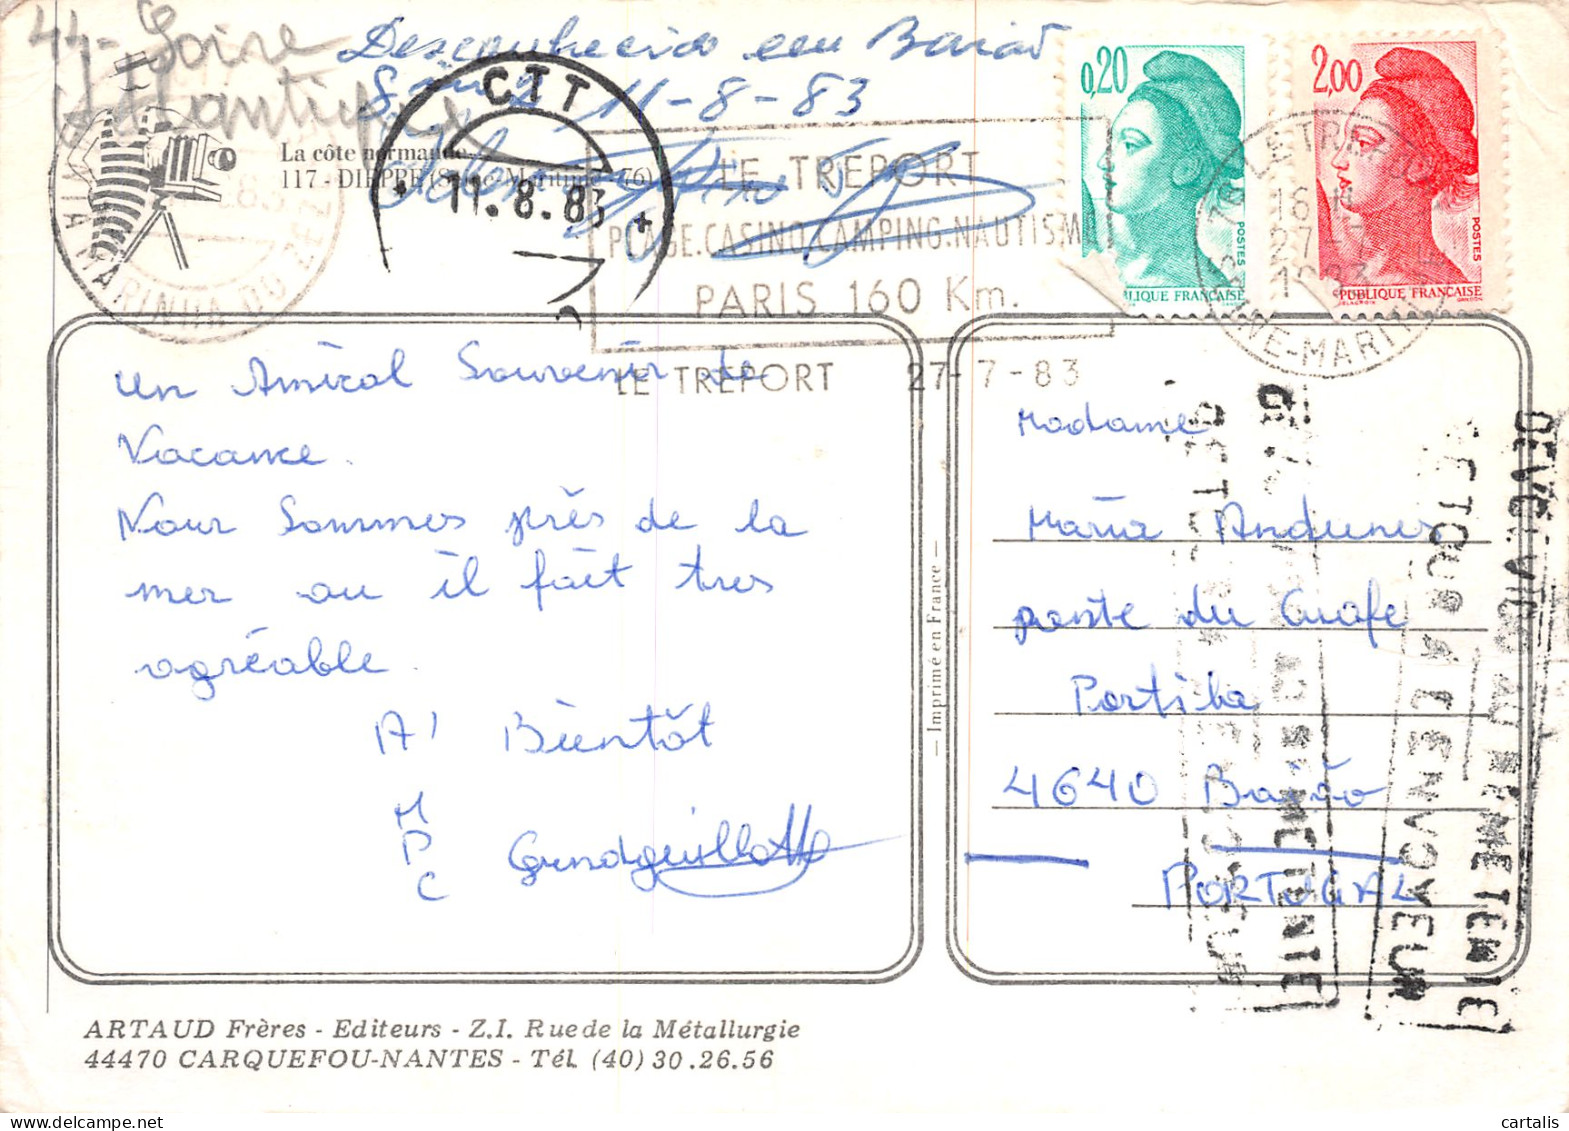 44- Loire
Atlantique
Desconhecido em Baião
11-8-83
La côte normande
117 - DIEPPE (Seine-Maritime - 76)
CTT
11.8.83
MARINHA DO ZEZERE
LE TREPORT
PLAGE.CASINO.CAMPING.NAUTISME
PARIS 160 Km.
LE TREPORT 27-7-83
0,20
POSTES
RÉPUBLIQUE FRANÇAISE
2,00
POSTES
RÉPUBLIQUE FRANÇAISE
76 LE TREPORT
16 H
27-7
1983
SEINE-MARITIME
un Amical Souvenir de
Vacance.
Nous Sommes près de la
mer ou il fait tres
agréable.
A' Bientôt
Madame
Maria
poste du
4640 Baião
PORTUGAL
DEVOLVIDO AO REMETENTE
RETOUR A L'ENVOYEUR
— Imprimé en France —
ARTAUD Frères - Editeurs - Z.I. Rue de la Métallurgie
44470 CARQUEFOU-NANTES - Tél. (40) 30.26.56
cartalis